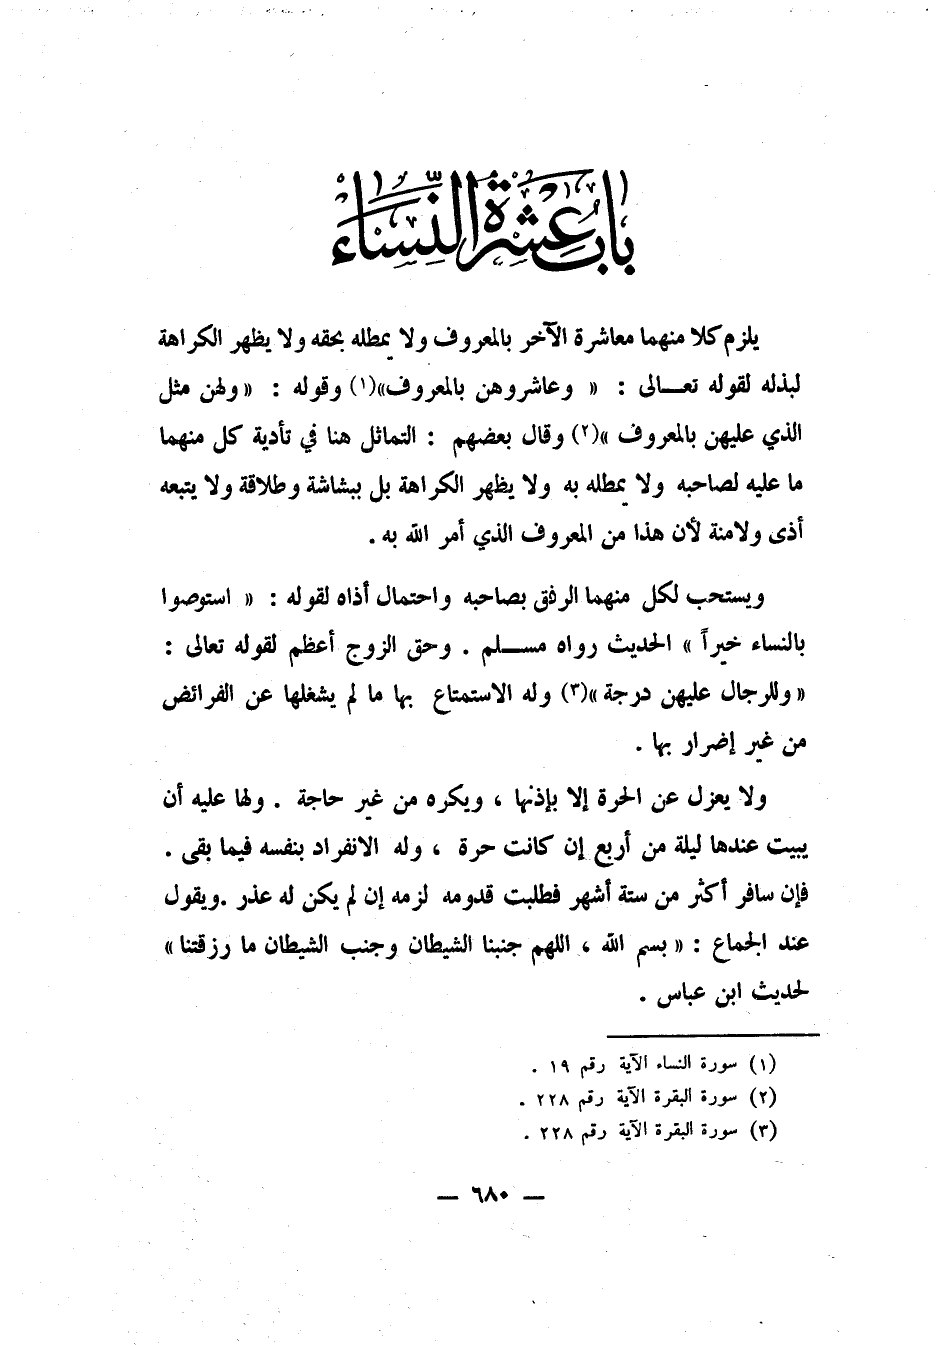 باب عِشرة النِّسَاء
يلزم كلا منهما معاشرة الآخر بالمعروف ولا يمطله بحقه ولا يظهر الكراهة
لبذله لقوله تعـــالى : « وعاشروهن بالمعروف»(١) وقوله : « ولهن مثل
الذي عليهن بالمعروف »(٢) وقال بعضهم : التماثل هنا في تأدية كل منهما
ما عليه لصاحبه ولا يمطله به ولا يظهر الكراهة بل ببشاشة وطلاقة ولا يتبعه
أذى ولامنة لأن هذا من المعروف الذي أمر الله به .
ويستحب لكل منهما الرفق بصاحبه واحتمال أذاه لقوله : « استوصوا
بالنساء خيراً » الحديث رواه مســـلم . وحق الزوج أعظم لقوله تعالى :
« وللرجال عليهن درجة »(٣) وله الاستمتاع بها ما لم يشغلها عن الفرائض
من غير إضرار بها .
ولا يعزل عن الحرة إلا بإذنها ، ويكره من غير حاجة . ولها عليه أن
يبيت عندها ليلة من أربع إن كانت حرة ، وله الانفراد بنفسه فيما بقى .
فإن سافر أكثر من ستة أشهر فطلبت قدومه لزمه إن لم يكن له عذر .ويقول
عند الجماع : « بسم الله ، اللهم جنبنا الشيطان وجنب الشيطان ما رزقتنا »
لحديث ابن عباس .
(١) سورة النساء الآية رقم ١٩ .
(٢) سورة البقرة الآية رقم ٢٢٨ .
(٣) سورة البقرة الآية رقم ٢٢٨ .
— ٦٨٠ —